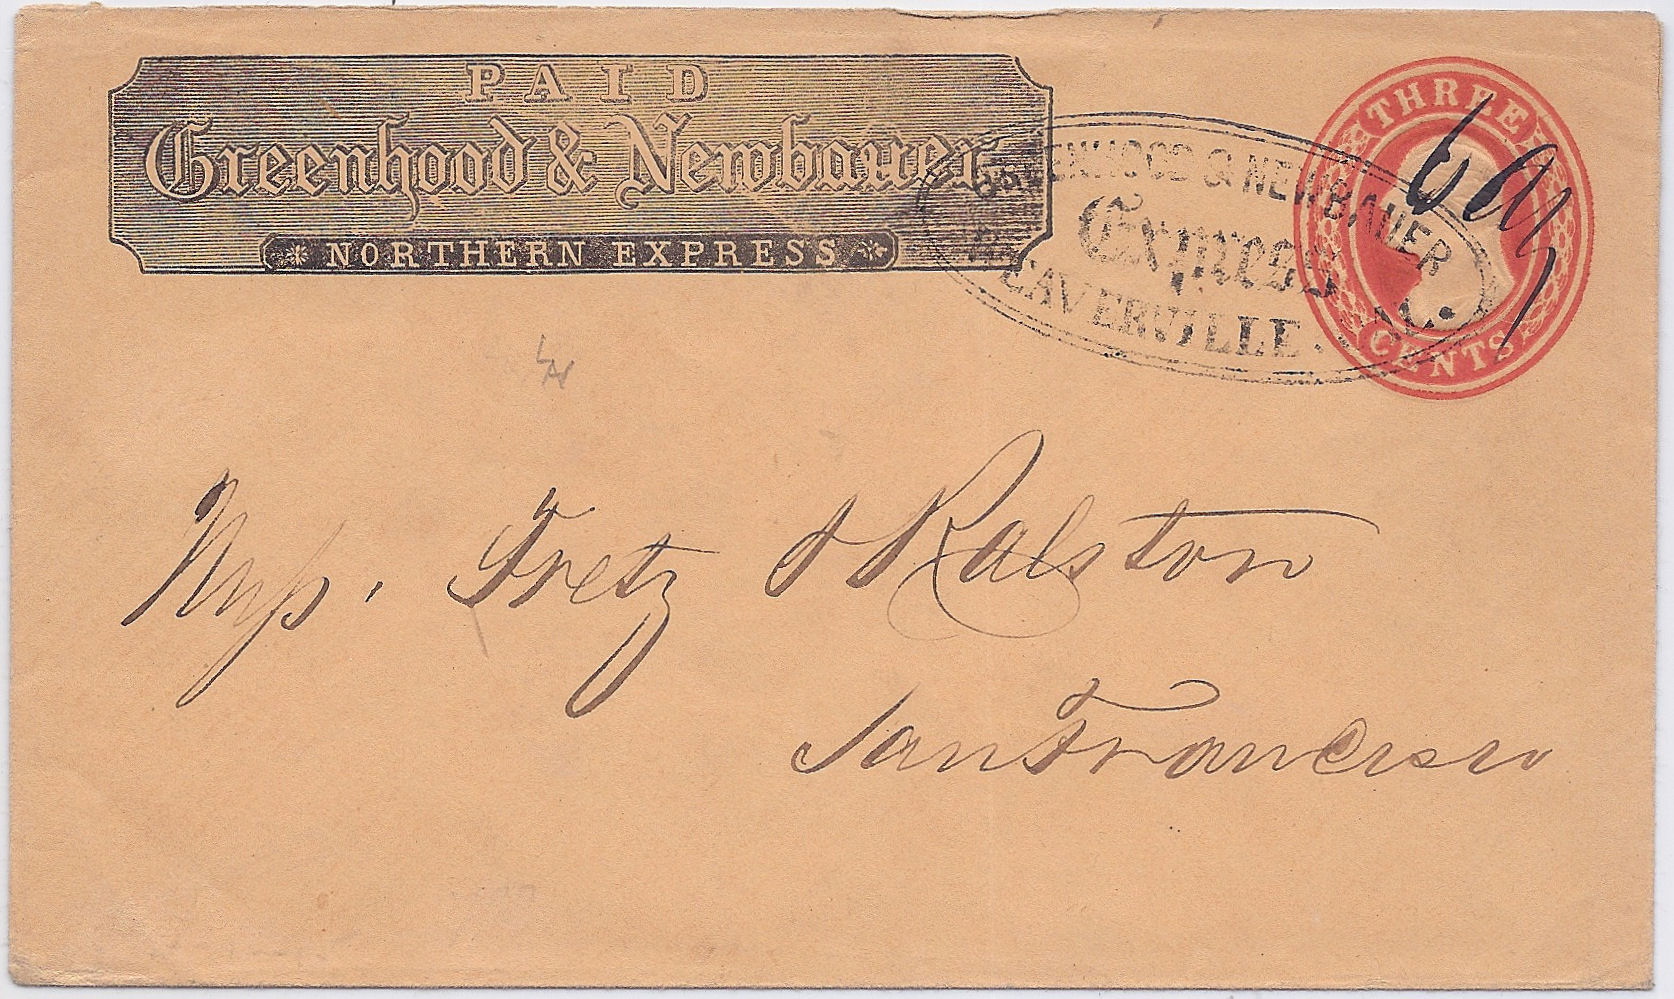 PAID
Greenhood & Newbauer
NORTHERN EXPRESS
GREENHOOD & NEWBAUER
Express
WEAVERVILLE. CAL.
THREE
CENTS
Mess. Fretz & Ralston
San Francisco